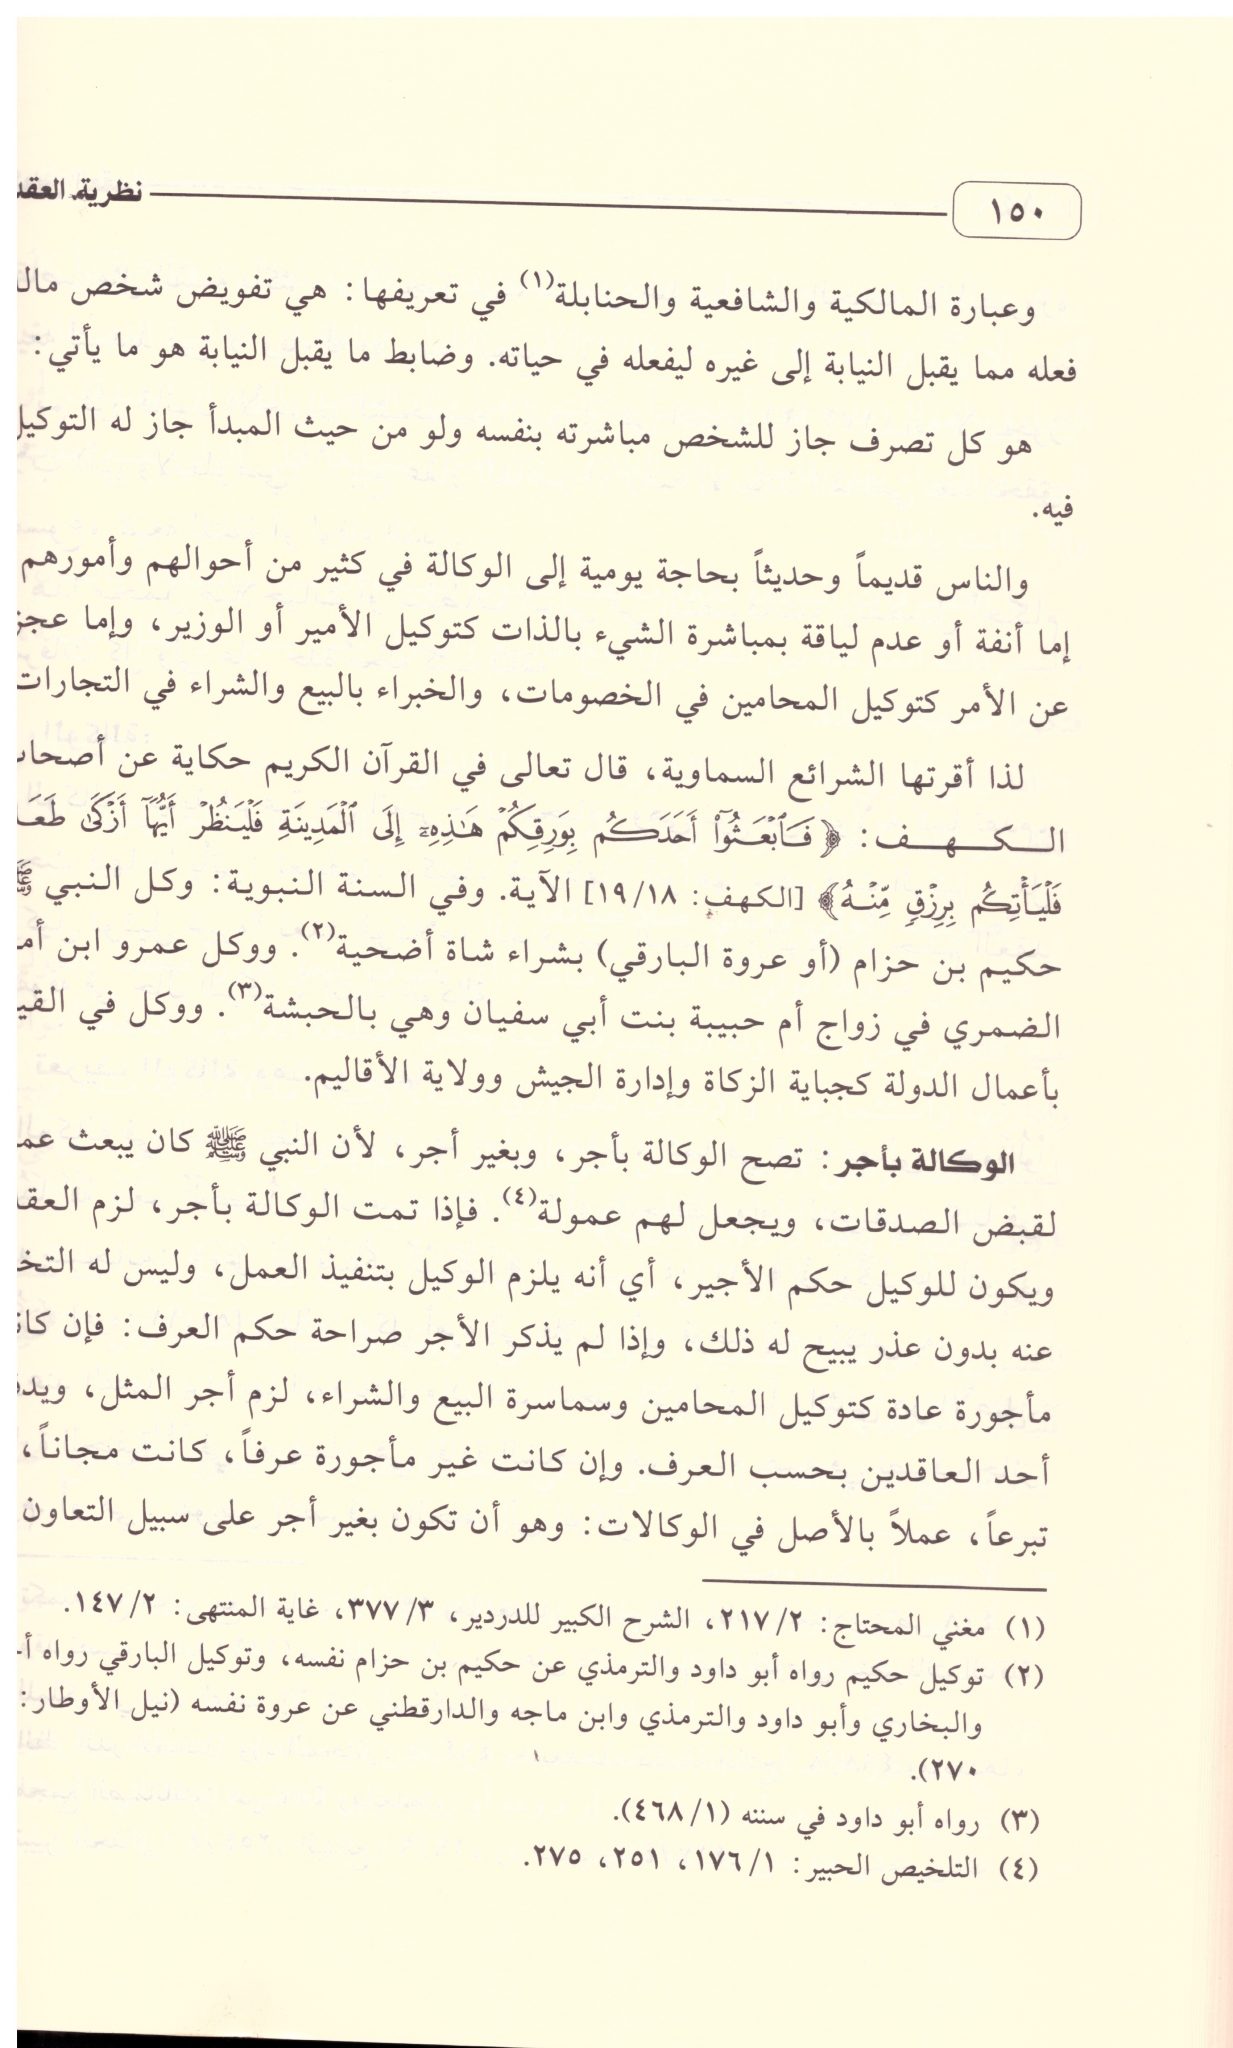 نظرية العقد
١٥٠
وعبارة المالكية والشافعية والحنابلة(١) في تعريفها: هي تفويض شخص
فعله مما يقبل النيابة إلى غيره ليفعله في حياته. وضابط ما يقبل النيابة هو ما يأتي:
هو كل تصرف جاز للشخص مباشرته بنفسه ولو من حيث المبدأ جاز له التوكيل
فيه.
والناس قديماً وحديثاً بحاجة يومية إلى الوكالة في كثير من أحوالهم وأمورهم
إما أنفة أو عدم لياقة بمباشرة الشيء بالذات كتوكيل الأمير أو الوزير، وإما عجز
عن الأمر كتوكيل المحامين في الخصومات، والخبراء بالبيع والشراء في التجارات
لذا أقرتها الشرائع السماوية، قال تعالى في القرآن الكريم حكاية عن
الكهف: ﴿فَٱبْعَثُوٓا۟ أَحَدَكُم بِوَرِقِكُمْ هَـٰذِهِۦٓ إِلَى ٱلْمَدِينَةِ فَلْيَنظُرْ أَيُّهَآ أَزْكَىٰ
فَلْيَأْتِكُم بِرِزْقٍ مِّنْهُ﴾ [الكهف: ١٩/١٨] الآية. وفي السنة النبوية: وكل النبي ﷺ
حكيم بن حزام (أو عروة البارقي) بشراء شاة أضحية(٢). ووكل عمرو ابن
الضمري في زواج أم حبيبة بنت أبي سفيان وهي بالحبشة(٣). ووكل في
بأعمال الدولة كجباية الزكاة وإدارة الجيش وولاية الأقاليم.
الوكالة بأجر: تصح الوكالة بأجر، وبغير أجر، لأن النبي ﷺ كان يبعث
لقبض الصدقات، ويجعل لهم عمولة(٤). فإذا تمت الوكالة بأجر، لزم العقد
ويكون للوكيل حكم الأجير، أي أنه يلزم الوكيل بتنفيذ العمل، وليس له
عنه بدون عذر يبيح له ذلك، وإذا لم يذكر الأجر صراحة حكم العرف: فإن
مأجورة عادة كتوكيل المحامين وسماسرة البيع والشراء، لزم أجر المثل،
أحد العاقدين بحسب العرف. وإن كانت غير مأجورة عرفاً، كانت مجاناً،
تبرعاً، عملاً بالأصل في الوكالات: وهو أن تكون بغير أجر على سبيل التعاون
(١) مغني المحتاج: ٢١٧/٢، الشرح الكبير للدردير، ٣٧٧/٣، غاية المنتهى: ١٤٧/٢.
(٢) توكيل حكيم رواه أبو داود والترمذي عن حكيم بن حزام نفسه، وتوكيل البارقي رواه
والبخاري وأبو داود والترمذي وابن ماجه والدارقطني عن عروة نفسه (نيل الأوطار:
٢٧٠).
(٣) رواه أبو داود في سننه (٤٦٨/١).
(٤) التلخيص الحبير: ١٧٦/١، ٢٥١، ٢٧٥.